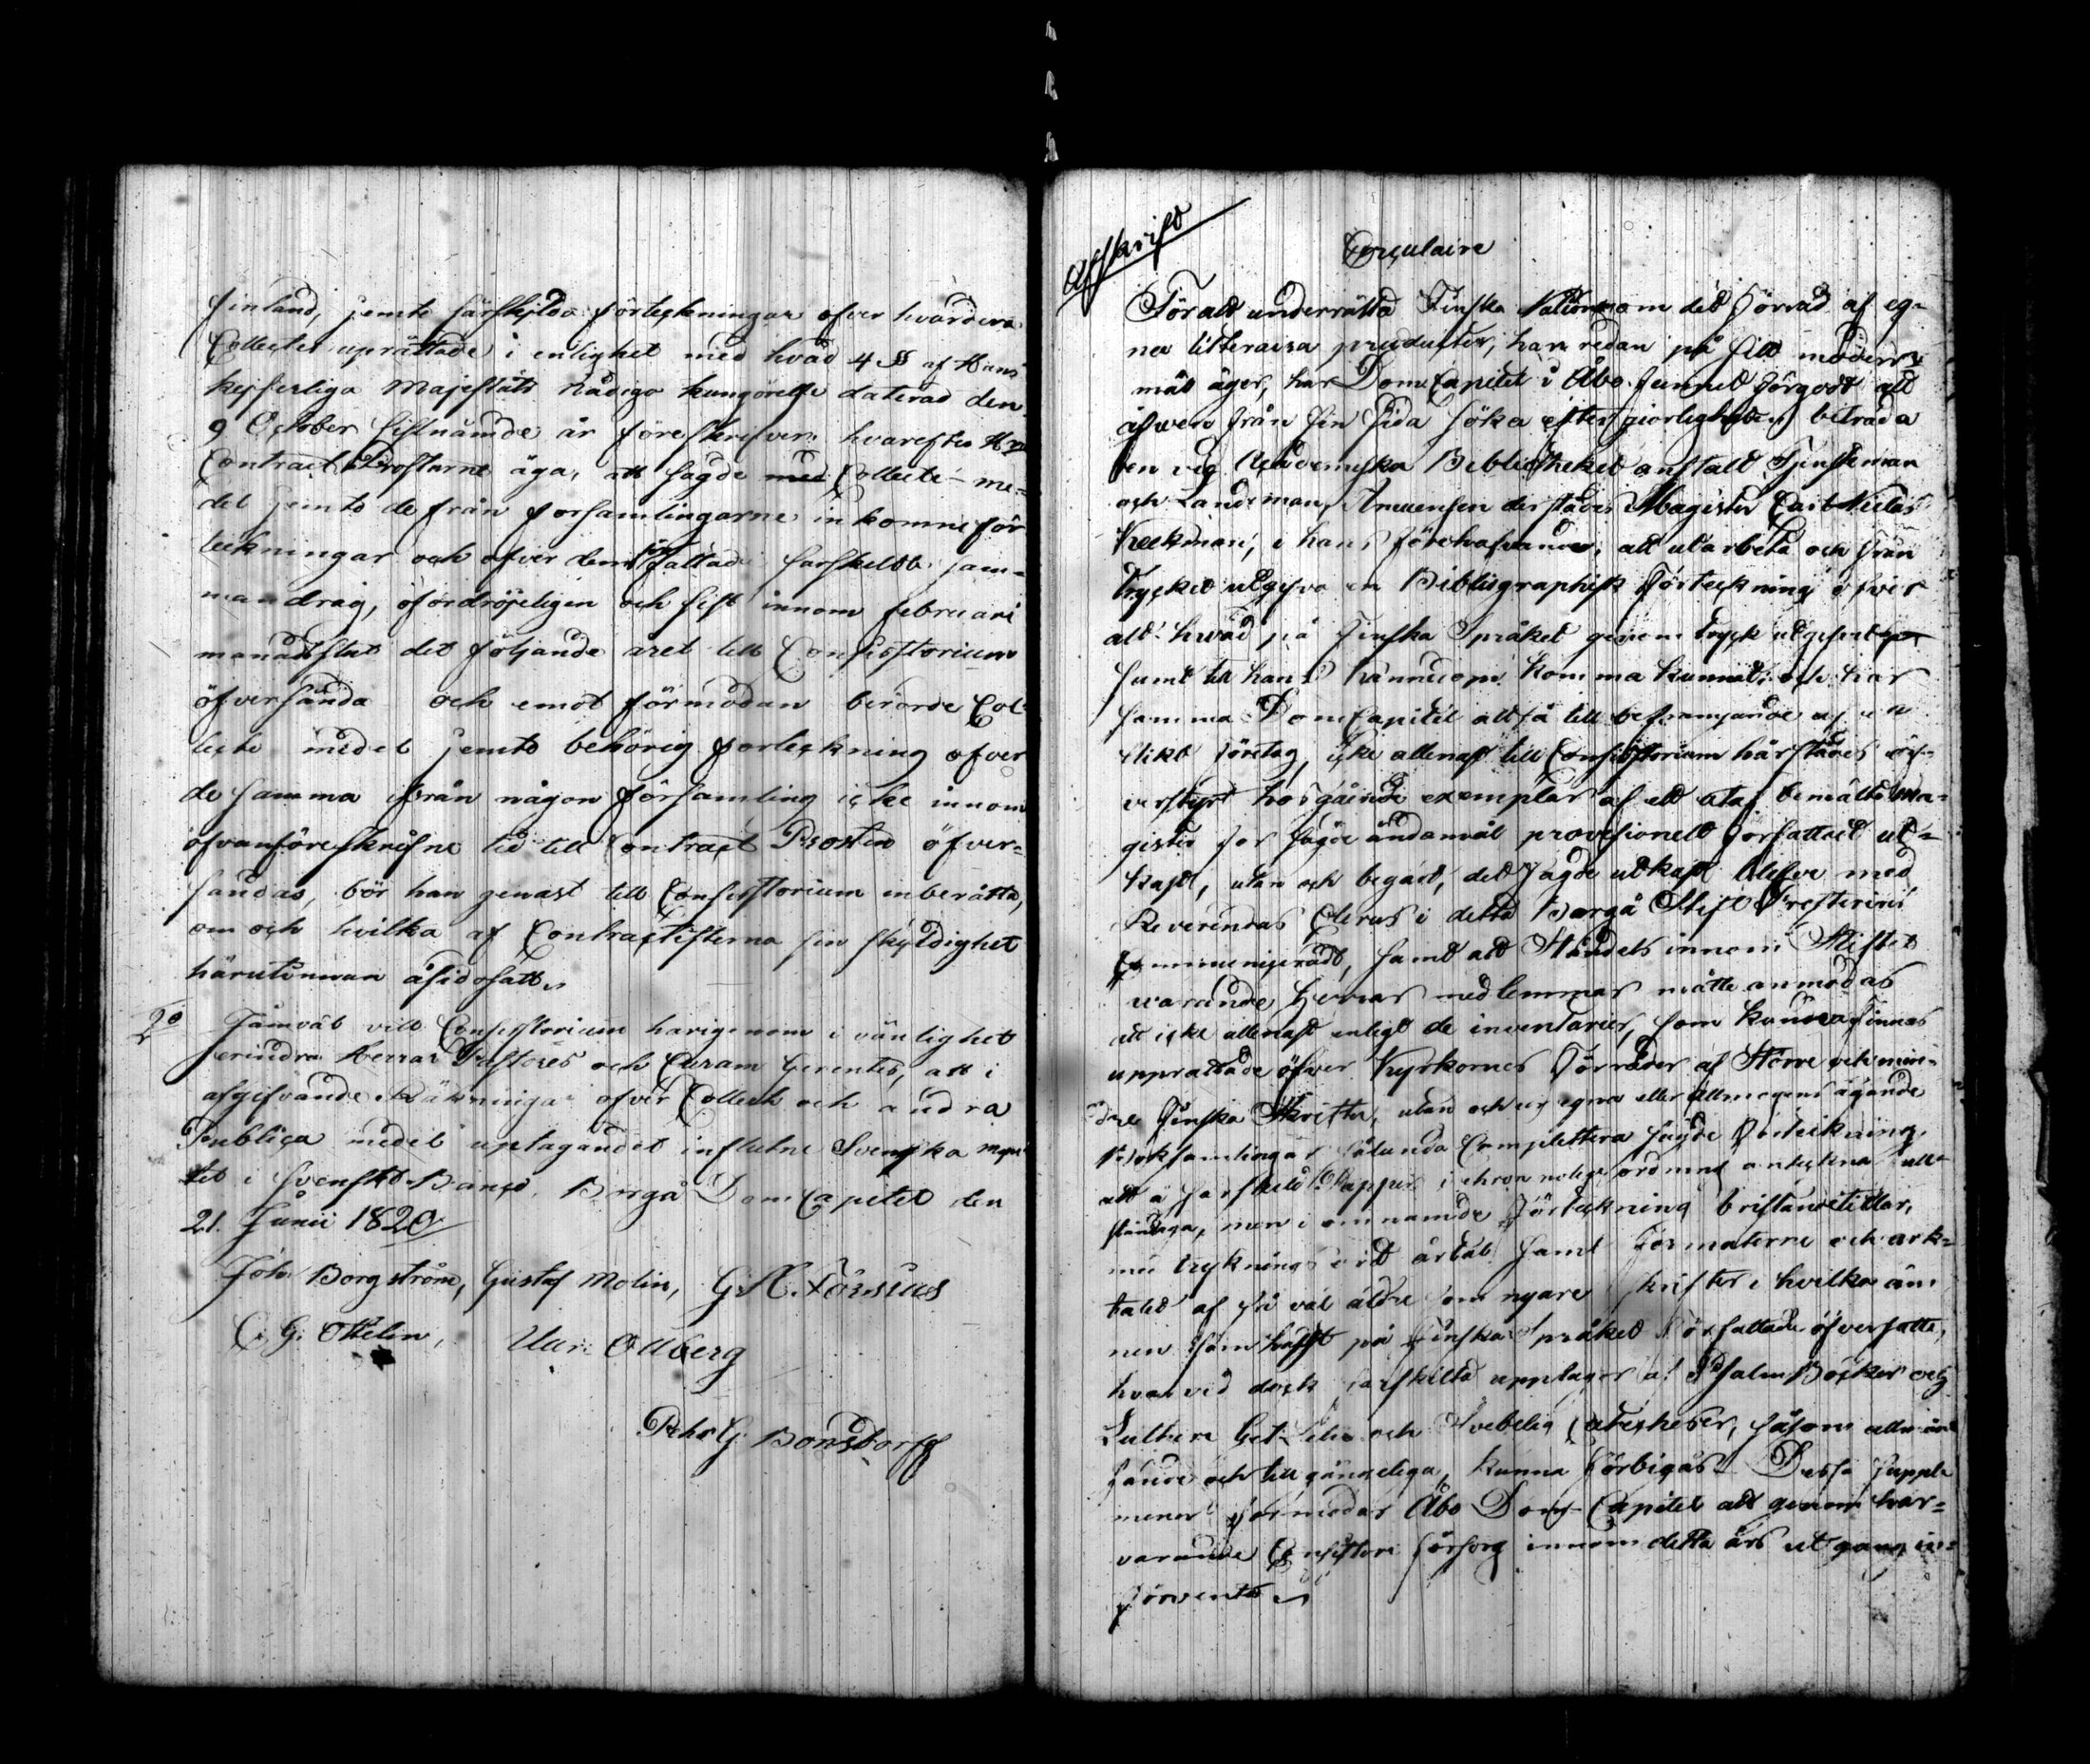 Finland, jemte särskylda förteckningar öfver hvardera
Collecter uprättade i enlighet med hvad 4 § af Hans
kejserliga Majestäts Nådiga kungörelse daterad den
9 October sistnämde år föreskrifver, hvarefter Hrr
Contract Prostarne äga, att sagde Collecte-me-
del jemte de från församlingarne inkomne för
teckningar och öfver dem författade särskildte sam-
mandrag, ofördröjeligen och sist innom februari
månads slut det följande året till Consistorium
öfversända och emot förmodan berörde Col-
lecte medel jemte behörig förteckning öfver
de samma från någon församling icke innom
ofvanföreskrifne tid till Contract Prosten öfver-
sändas, bör han genast till Consistorium inberätta,
om och hvilka af Contractisterna sin skyldighet
härutinnan åsidosatt.
2o Jämväl vill Consistorium härigenom i vänlighet
erindra Herrar Pastores och Curam Gerentes, att i
afgifvande Räkningar öfver Collect och andra
Publica medel uptagandet influtne Svenska mynt
tet i svenskt Banco. Borgå DomCapitel den
21. Junii 1820
Joh. Borgström, Gustaf Molin, G. A. Forssius
C. G. Ottelin, Ullberg
Pehr G. Bonsdorff
Afskrift
Circulaire
För att underrätta Finska Nation om det Förråd af eg-
na litteraira producter, han redan på sitt moders-
mål äger, har DomCapitel i Åbo funnit förgodt att
äfwen från sin sida söka efter giörligheten biträda
en vid Academiska Bibliotheket anstald Tjensteman
och Landsman, Amanuensen derstädes Magister Carl Niclas
Keckman, i hans förehafvande, att utarbeta och från
trycket utgifva en Bibliographisk Förteckning öfver
alt hwad på Finska Språket genom tryck utgifvit
samt till hans kännedom komma kunnat, och har
samma DomCapitel altså till befrämjande af ett
slikt företag, icke allenast till Consistorium härstädes öf-
verstyrt hosgående exemplar af ett utaf bemälte Ma-
gister för sagde ändamål provisionelt författadt ut-
kast, utan och begärt, det sagde utkast blefve med
Reverendus Clerus i detta Borgå Stift Presterne
Communicerådt, samt att Ståndets innom Stiftet
warande Herrar medlemmar måtte anmodas
att icke allenast enligt de inventarier, som kunna finnas
upprättade öfver Kyrkornes Förråder af Större och min-
dre Finska Skrifter, utan och ur egna eller Allmogens ägande
Boksamlingar sålunda Complettera sagde Förteckning,
att å särskildt Papper i chronologisk ordning anteckna full-
ständiga, men i omnämde Förteckning bristande titlar,
med tryknings ort årtal samt Formaterne och ark-
talet af så väl äldre som nyare skrifter i hvilka äm
nen som hälst på Finska Språket författade öfversatte,
hvarvid dock särskilta upplagor af Psalm Böcker och
Lutheri och Svebelii Catecheser, såsom allmänt
kände och tillgängeliga, kunna förbigås. Dessa supple
menter förmodar Åbo Dom Capitel att genom här-
varande Consistorii försorg innom detta års utgång
förvente.